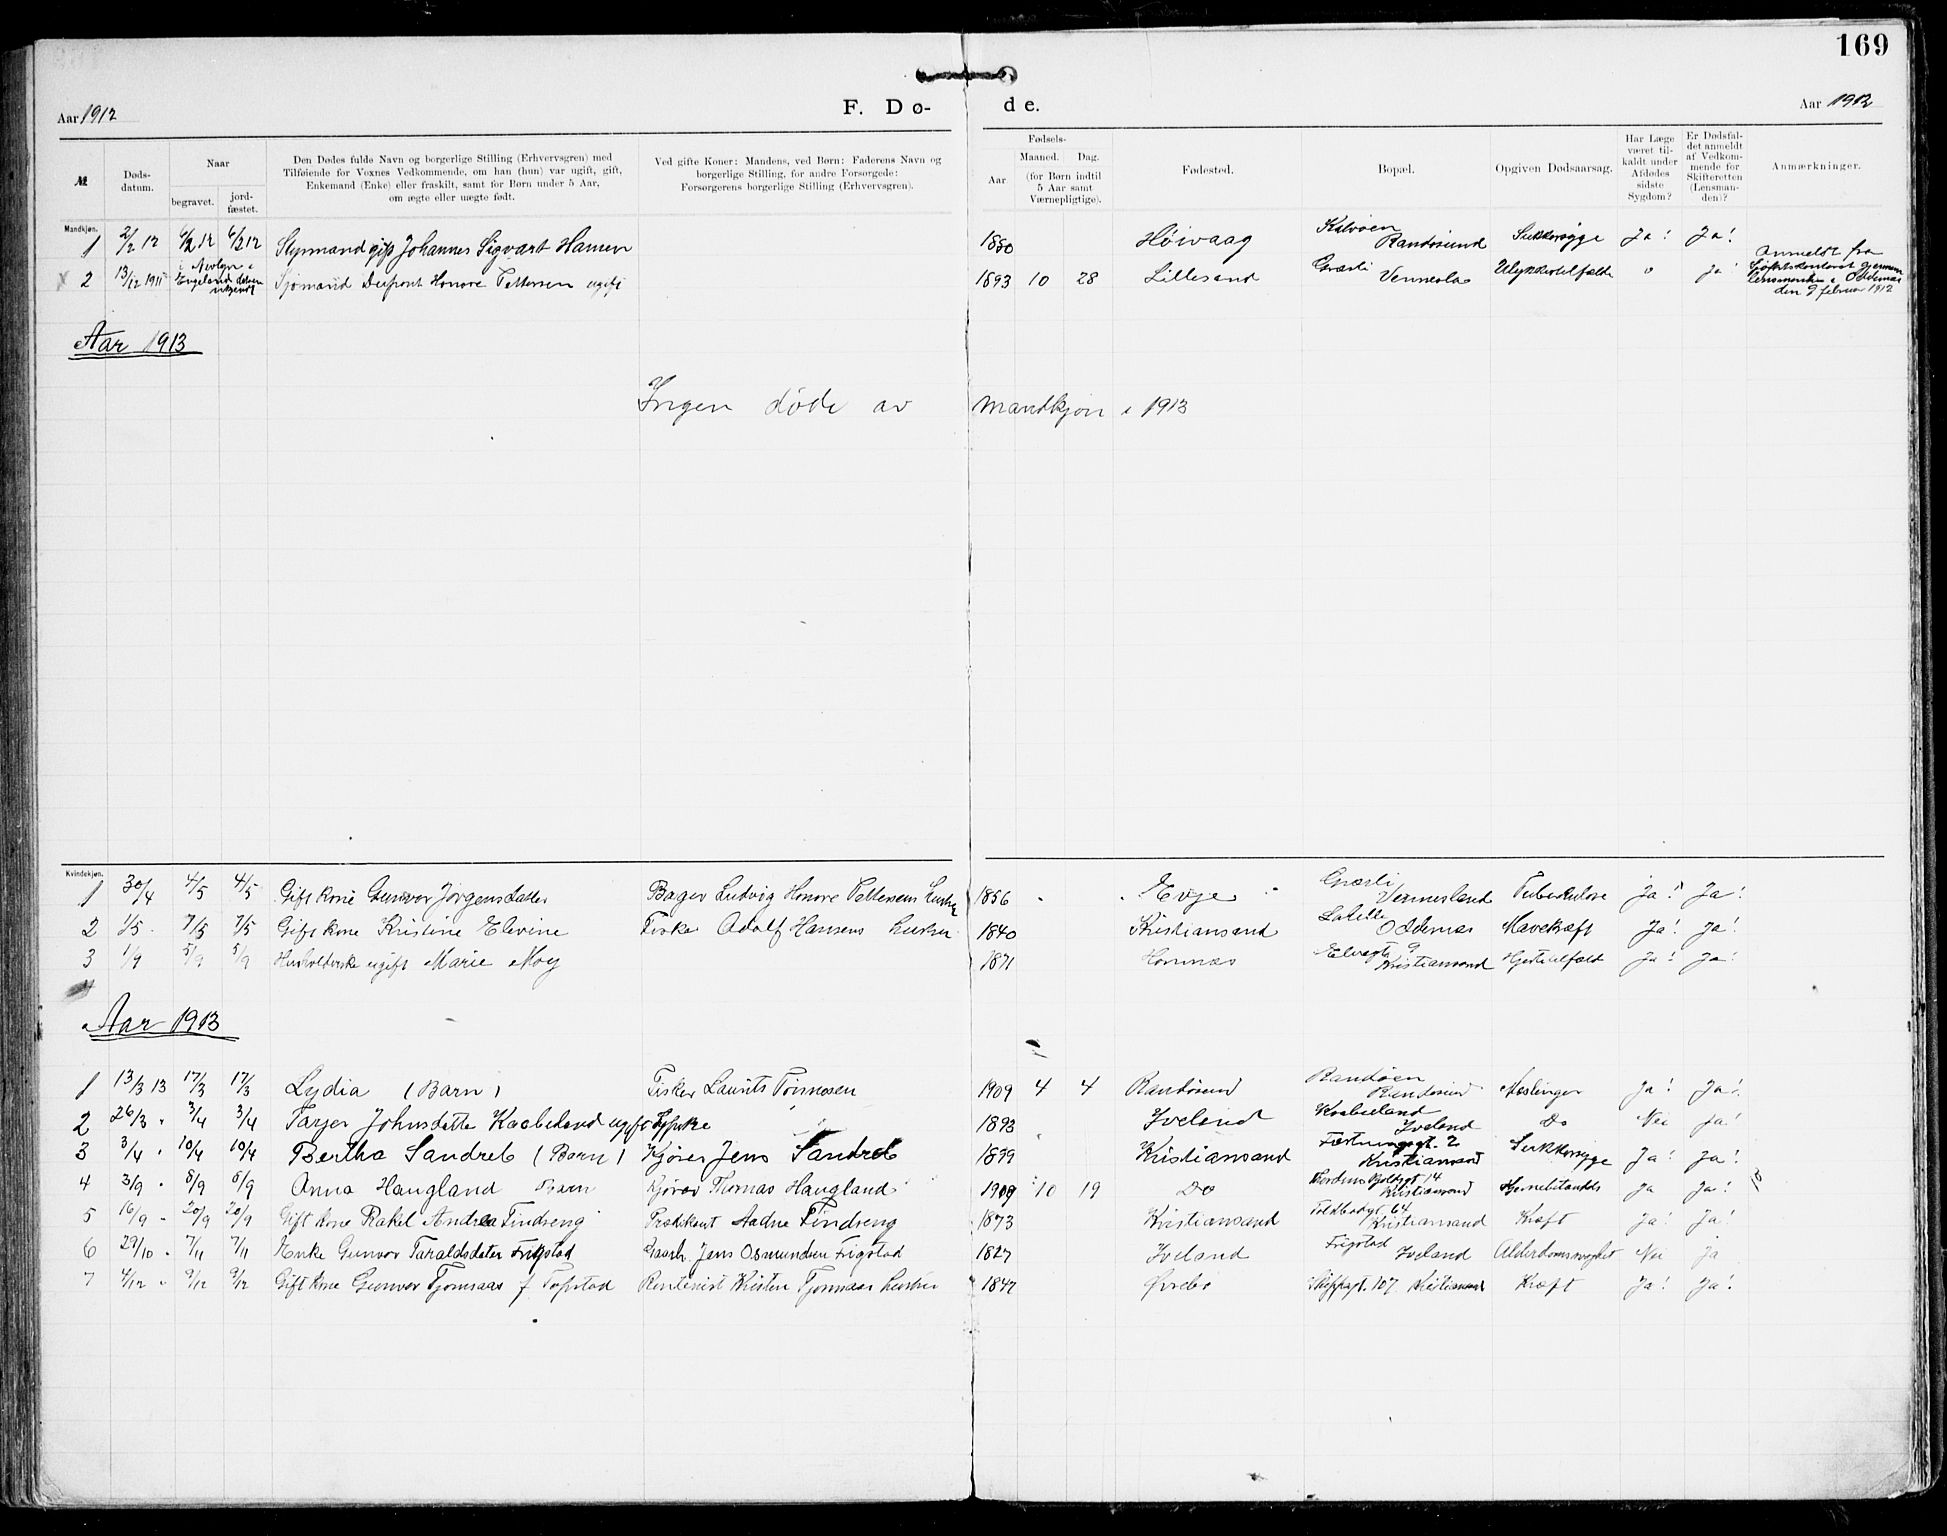 169
Aar 1912 F. Dø- de. Aar 1912
№
Døds-datum.
Naar
begravet. jord-fæstet.
Den Dødes fulde Navn og borgerlige Stilling (Erhvervsgren) med
Tilføiende for Voxnes Vedkommende, om han (hun) var ugift, gift,
Enkemand (Enke) eller fraskilt, samt for Børn under 5 Aar,
om ægte eller uægte født.
Ved gifte Koner: Mandens, ved Børn: Faderens Navn og
borgerlige Stilling, for andre Forsørgede:
Forsørgerens borgerlige Stilling (Erhvervsgren).
Fødsels-
Aar Maaned. Dag.
(for Børn indtil
5 Aar samt
Værnepligtige).
Fødested.
Bopæl.
Opgiven Dødsaarsag.
Har Læge
været til-
kaldt under
Afdødes
sidste
Sygdom?
Er Dødsfal-
det anmeldt
af Vedkom-
mende for
Skifteretten
(Lensman-
den)?
Anmærkninger.
Mandkjøn.
1 2/2 12 6/2 12 6/2 12 Styrmand gift Johannes Sigvart Hansen 1880 Høivaag Kalvøen Randøsund Sukkersyge Ja! Ja!
2 13/12 1911 i Engeland Sjømand Honore Pettersen ugift 1893 10 28 Lillesand Græsli Vennesla Ulykkestilfælde o ja Anmeldt fra gjennem lensmanden i Oddernes den 9 februar 1912
Aar 1913
Ingen døde av Mandkjøn i 1913
Kvindekjøn.
1 30/4 4/5 4/5 Gift kone Gunvor Jørgensdatter Bager Ludvig Honore Pettersens hustru 1856 Evje Græsli Vennesland Tuberkulose Ja! Ja!
2 1/5 7/5 7/5 Gift kone Kristine Elevine Fisker Adolf Hansens hustru 1840 Kristiansand Oddernes Mavekræft Ja! Ja!
3 1/9 5/9 5/9 ugift Marie Moy 1871 Hornnes Elvegt 9 Kristiansand Ja! Ja!
4
Aar 1913
1 13/3 13 17/3 17/3 Lydia (Barn) Fisker Laurits Tønnesen 1909 4 4 Randøsund Randøen Randøsund Meslinger Ja! Ja!
2 26/3 " 3/4 3/4 Tarjer Johnsdatte Kaabeland ugift 1893 Iveland Kaabeland Iveland Do Nei Ja!
3 3/4 " 10/4 10/4 Bertha Sandreb (Barn) Kjører Jens Sandreb 1899 Kristiansand Fæstningsgt. 2 Kristiansand Sukkersyge Ja! Ja!
4 3/9 " 8/9 8/9 Anna Haugland Barn Kjører Thomas Haugland 1909 10 19 Do Kristiansand Ja Ja!
5 16/9 " 20/9 20/9 Gift kone Rakel Andrea Findreng Prædikant Aadne Findreng 1873 Kristiansand Toldbodgt 64 Kristiansand Kræft Ja! Ja!
6 29/10 " 7/11 7/11 Enke Gunvor Taraldsdater Frigstad Gaarb. Jens Osmundsen Frigstad 1827 Iveland Frigstad Iveland Alderdomssvaghet Nei ja
7 4/12 " 9/12 9/12 Gift kone Gunvor Tjomsaas f Topstad Rentenist Kristen Tjomsaas hustru 1847 Øvrebø Skippergt. 107 Kristiansand Kræft Ja! Ja!